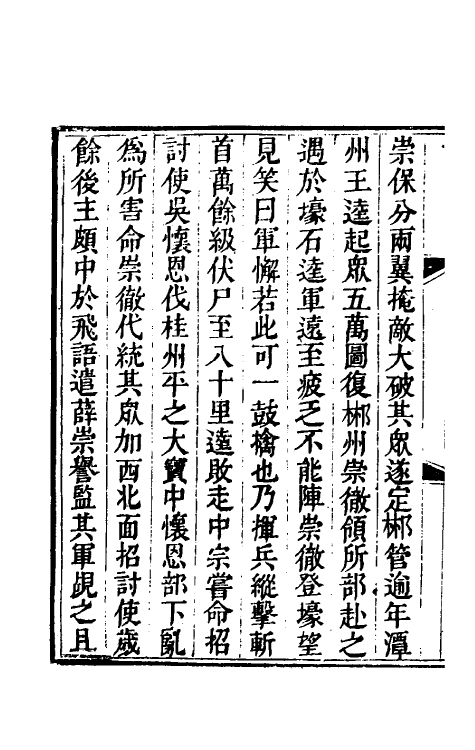 崇保分兩翼掩敵大破其眾遂定郴管逾年潭
州王逵起眾五萬圖復郴州崇徹領所部赴之
遇於壕石逵軍遠至疲乏不能陣崇徹登壕望
見笑曰軍懈若此可一鼓擒也乃揮兵縱擊斬
首萬餘級伏尸至八十里逵敗走中宗嘗命招
討使吳懷恩伐桂州平之大寶中懷恩部下亂
為所害命崇徹代統其眾加西北面招討使歲
餘後主頗中於飛語遣薛崇譽監其軍覘之且